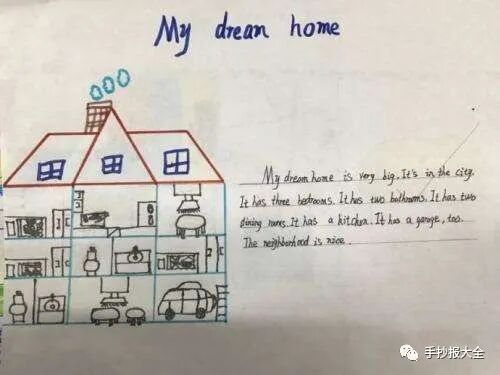 My drean home
My dream home is very big. It's in the city.
It has three bedrooms. It has two bathrooms. It has two
dining rooms. It has a kitchen. It has a garage, too.
The neighborhood is nice.
手抄报大全